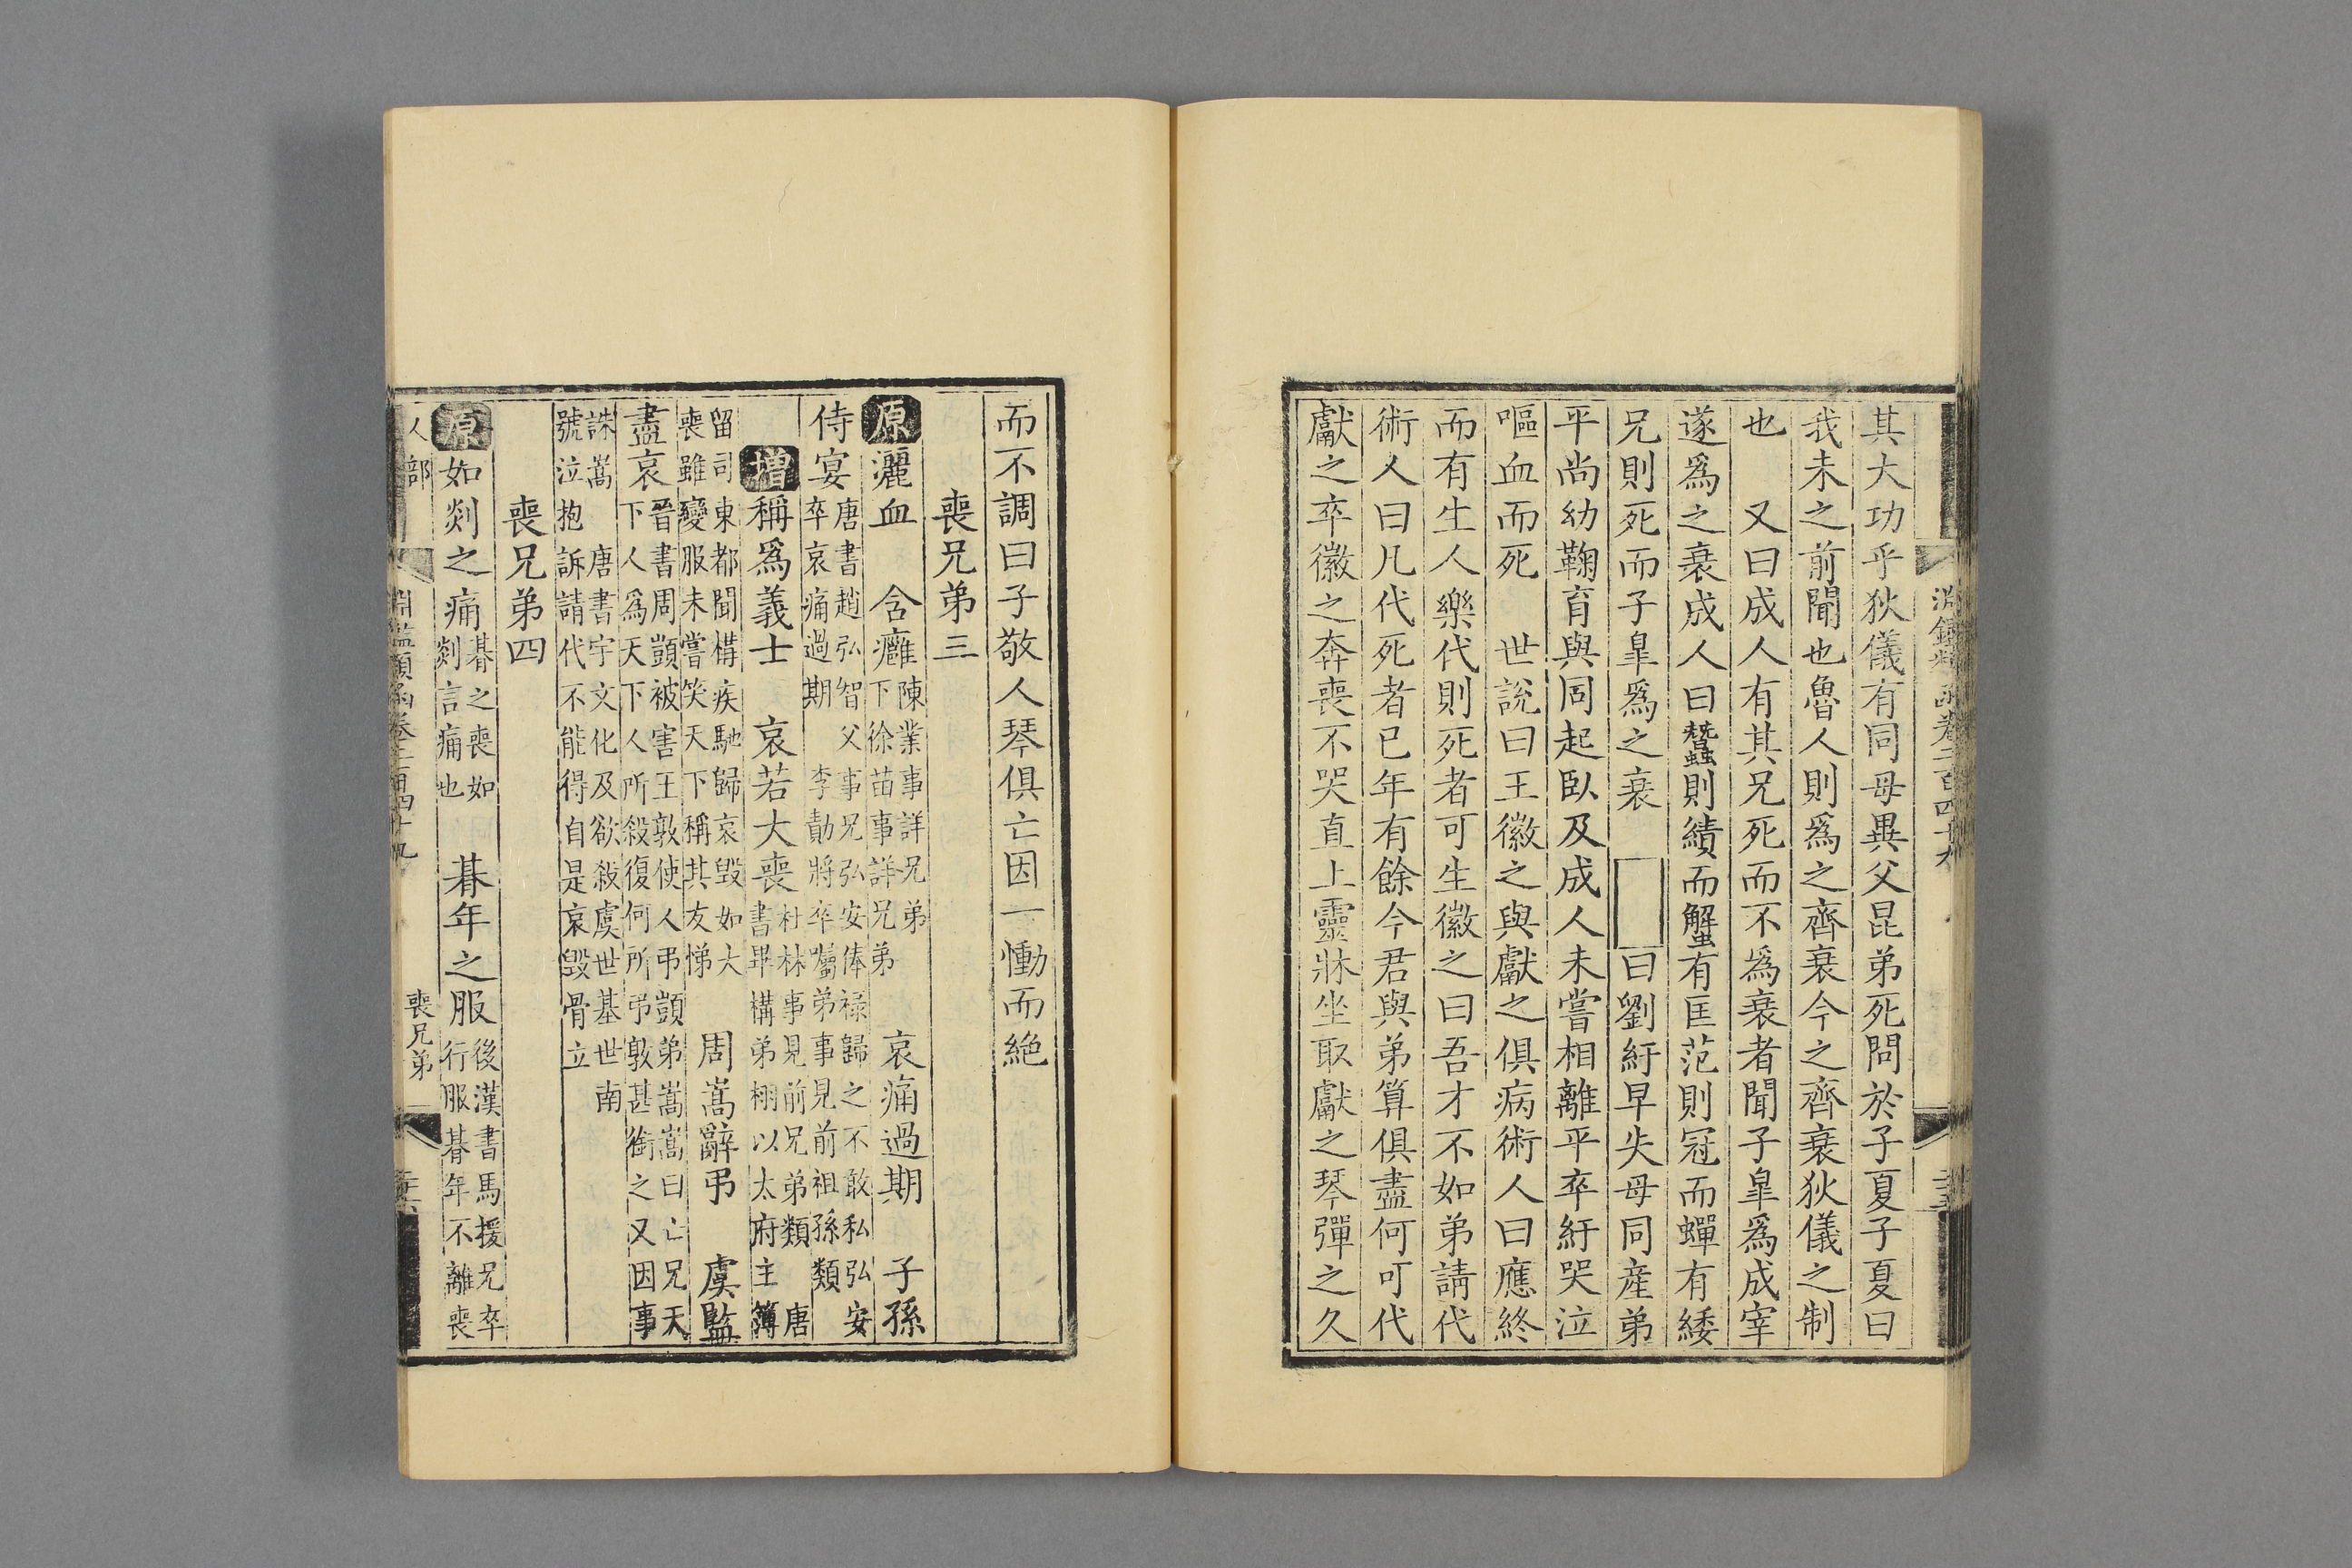 淵鑑類函卷二百四十九
其大功乎狄儀有同母異父昆弟死問於子夏子夏曰
我未之前聞也魯人則爲之齊衰今之齊衰狄儀之制
也 又曰成人有其兄死而不爲衰者聞子臯爲成宰
遂爲之衰成人曰蠶則績而蟹有匡范則冠而蟬有緌
兄則死而子臯爲之衰 曰劉紆早失母同産弟
平尚幼鞠育與同起臥及成人未嘗相離平卒紆哭泣
嘔血而死 世說曰王徽之與獻之俱病術人曰應終
而有生人樂代則死者可生徽之曰吾才不如弟請代
術人曰凡代死者已年有餘今君與弟算俱盡何可代
獻之卒徽之奔喪不哭直上靈牀坐取獻之琴彈之久
而不調曰子敬人琴俱亡因一慟而絶
喪兄弟三
原灑血 含癰
陳業事詳兄弟
下徐苗事詳兄弟
哀痛過期 子孫
侍宴
唐書趙弘智父事兄弘安俸禄歸之不敢私弘安
卒哀痛過期 李勣將卒囑弟事見前祖孫類
增稱爲義士 哀若大喪
杜林事見前兄弟類 唐
書畢構弟栩以太府主簿
留司東都聞構疾馳歸哀毁如大
喪雖變服未嘗笑天下稱其友悌
周嵩辭弔 虞監
盡哀
晉書周顗被害王敦使人弔顗弟嵩嵩曰亡兄天
下人爲天下人所殺復何所弔敦甚銜之又因事
誅嵩 唐書宇文化及欲殺虞世基世南
號泣抱訴請代不能得自是哀毁骨立
喪兄弟四
原如剡之痛
朞之喪如
剡言痛也
朞年之服
後漢書馬援兄卒
行服朞年不離喪
人部 淵鑑類函卷二百四十九 喪兄弟